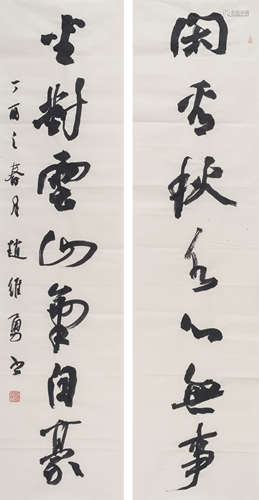 閑看秋水心無事
坐對雲山氣自豪
丁酉之春月趙維勇書